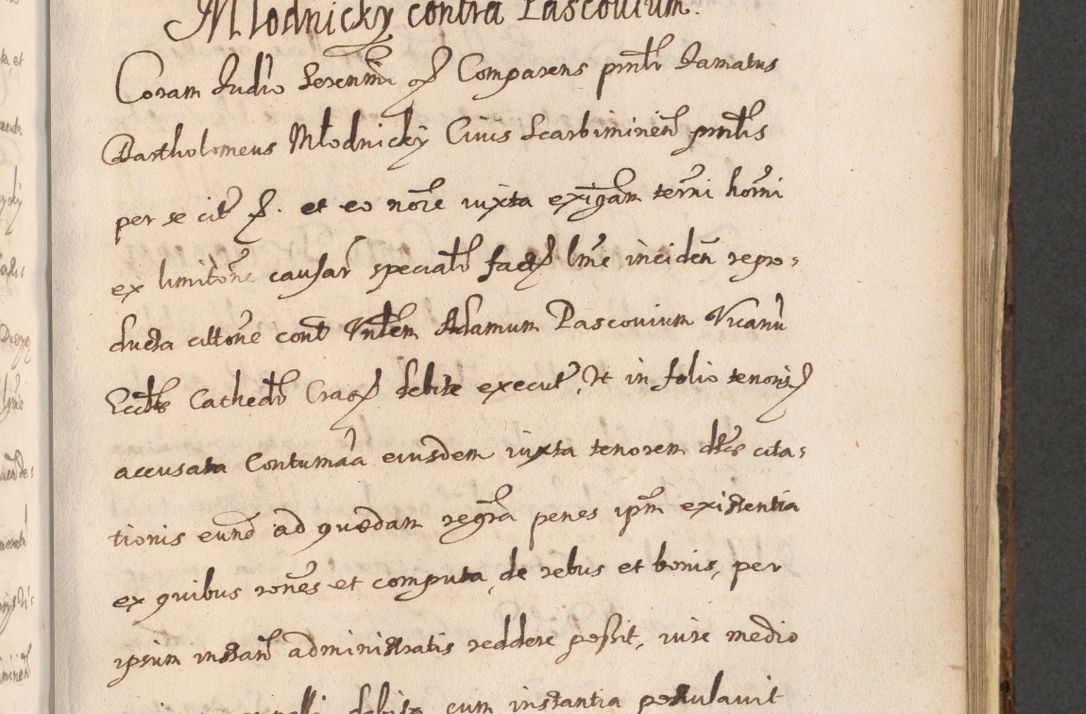 Młodnicky contra Pascovium.
Coram Judio Serenmi Comparens pntr Famatus
Bartholomeus Młodnicky Civis Scarbiminen pntis
per se cit. et eo noie iuxta exigam termi horni
ex limitone causar specialr fact lme inciden repro-
ducta cittone cont Vnlem Adamum Pascovium Vicarium
Eccltae Cathedr Crac debite execut, It in folio tenoris
accusata Contumaa eiusdem iuxta tenorem dtae cita-
tionis eund ad quædam regra penes ipm existentia
ex quibus rones et computa, de rebus et bonis, per
ipsum instan administratis reddere possit, iure medio
debita cum instantia postulavit